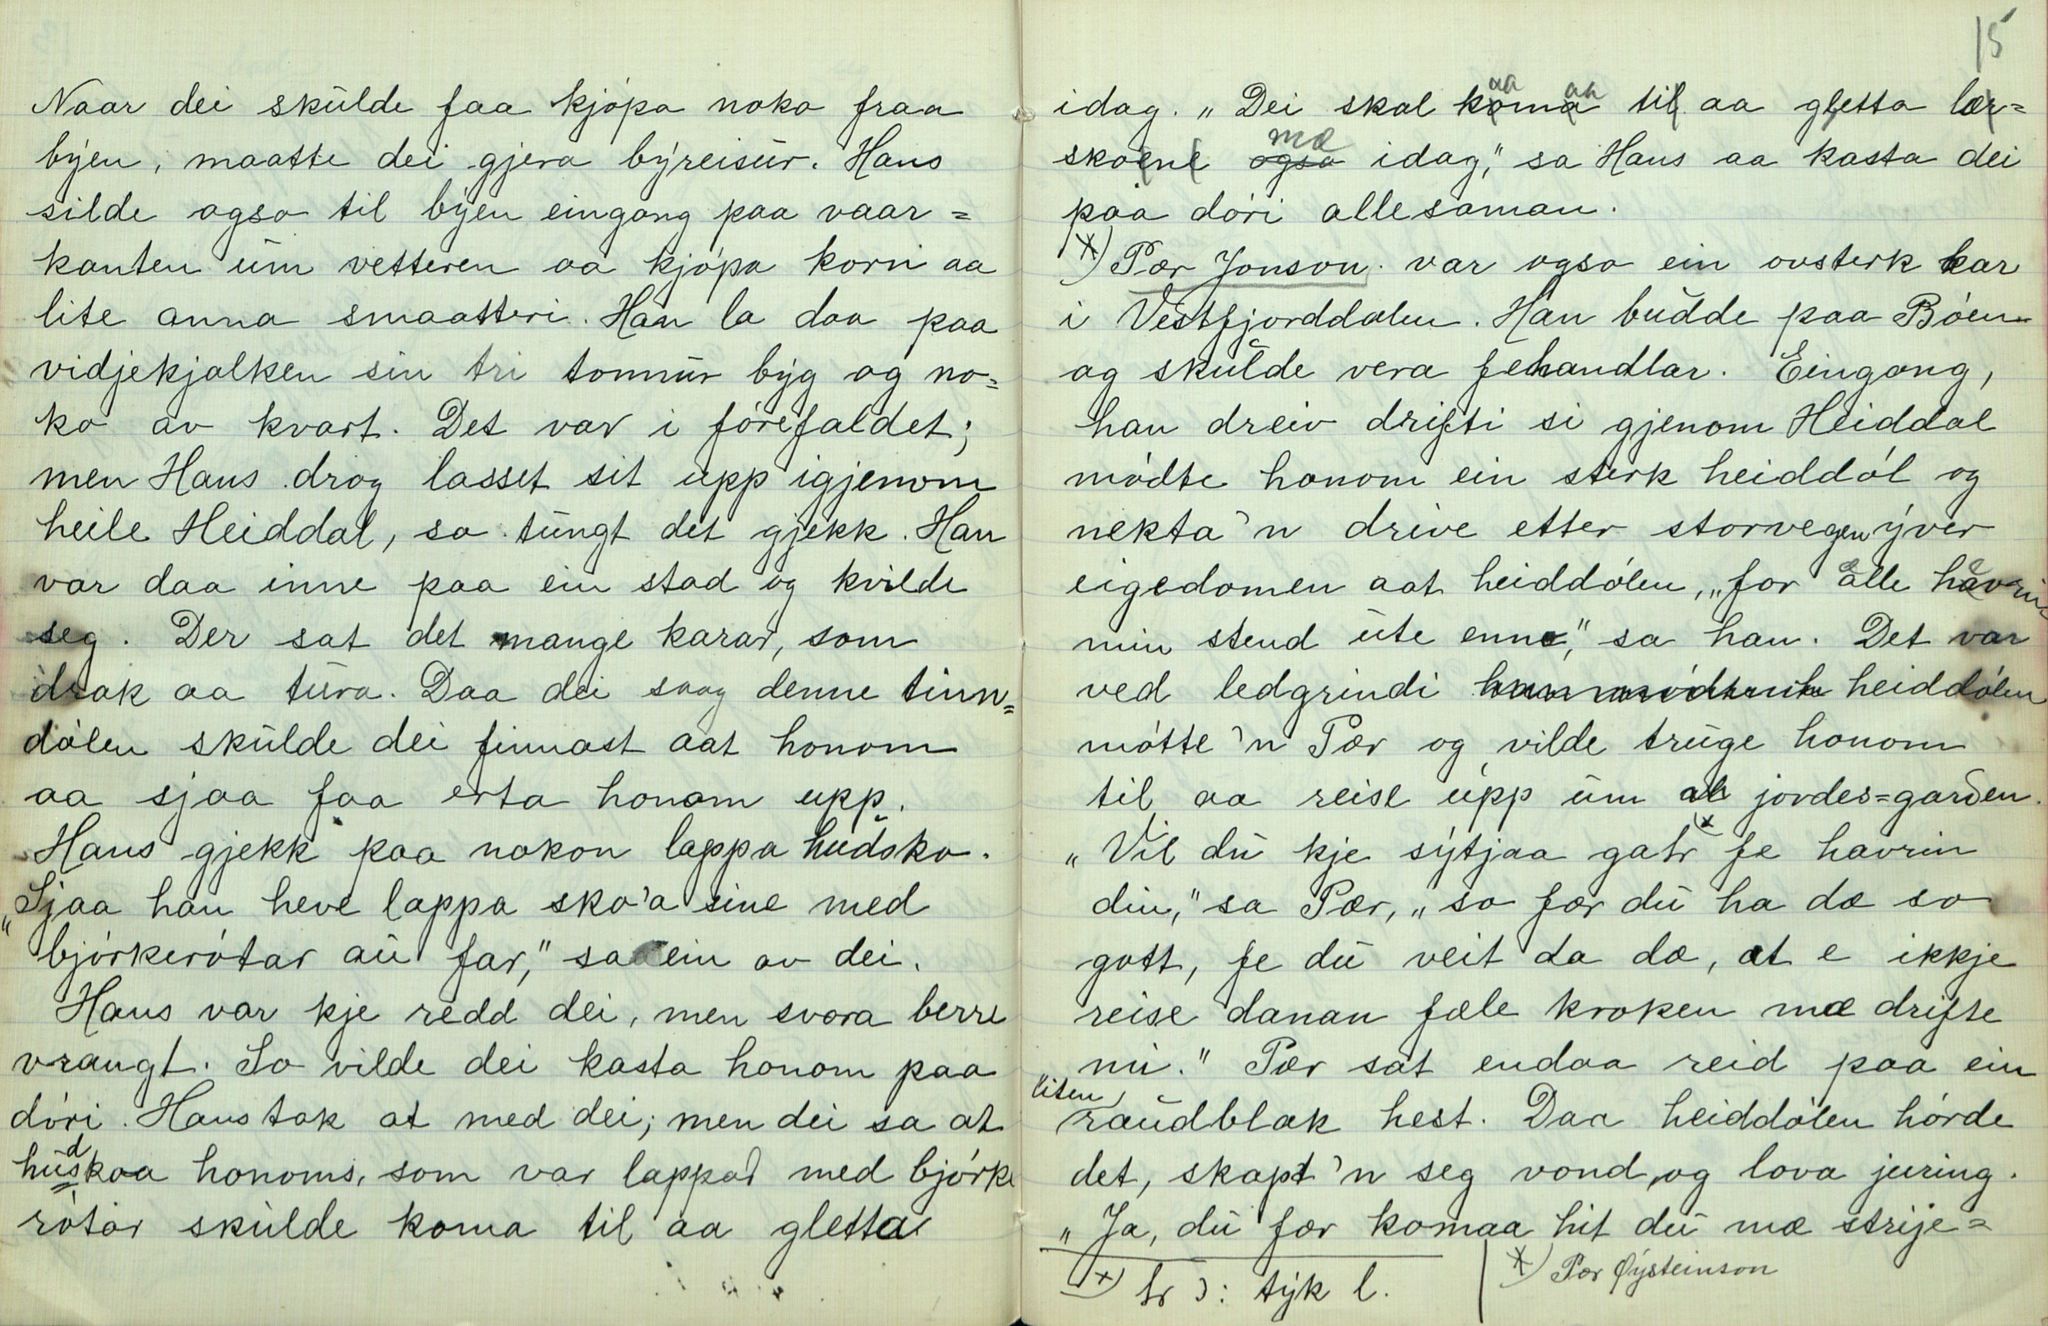 Naar dei skulde faa kjópa noko fraa
býen, maatte dei gjera býreisur. Hans
silde ogso til býen eingong paa vaar=
kanten um vetteren aa kjópa korn aa
lite anna smaatteri. Han la daa paa
vidjekjalken sin tri tonnur býg og no=
ko av kvart. Det var i fórefaldet;
men Hans drog lasset sit upp igjenom
heile Heiddal, so tungt det gjekk. Han
var daa inne paa ein stad og kvilde
seg. Der sat det mange karar, som
drak aa tura. Daa dei saag denne tinn=
dólen skulde dei finnast aat honom
aa sjaa faa erta honom upp.
Hans gjekk paa nokon lappa hudsko.
"Sjaa han heve lappa sko'a sine med
bjórkerótar au far," sa ein av dei.
Hans var kje redd dei, men svora berre
vrangt. So vilde dei kasta honom paa
dóri. Hans tok at med dei; men dei sa at
hudskoa honoms, som var lappad med bjórke
rótar skulde koma til aa gletta
15
idag. "Dei skal komaa til aa gletta lær=
skoene mæ idag," sa Hans aa kasta dei
paa dóri allesaman.
x) Pær Jonson var ogso ein ovsterk kar
i Vestfjorddalen. Han budde paa Bóen
og skulde vera fehandlar. Eingong,
han dreiv drifti si gjenom Heiddal
módte honom ein sterk heiddól og
nekta'n drive etter storvegen ýver
eigedomen aat heiddólen, "for alle havrin
min stend ute enno," sa han. Det var
ved ledgrindi heiddólen
mótte'n Pær og vilde truge honom
til aa reise upp um al jordes=garden.
"Vil du kje sýtjaa gatr x) fe havrin
din," sa Pær, "so fær du ha dæ so
gott, fe du veit da dæ, at e ikkje
reise danan fæle kroken mæ drifte
mi." Pær sat endaa reid paa ein
liten raudblak hest. Daa heiddólen hórde
det, skapt'n seg vond, og lova juring.
"Ja, du fær komaa hit du mæ strije=
x) tr ɔ: týk l.
x) Pær Øýsteinson